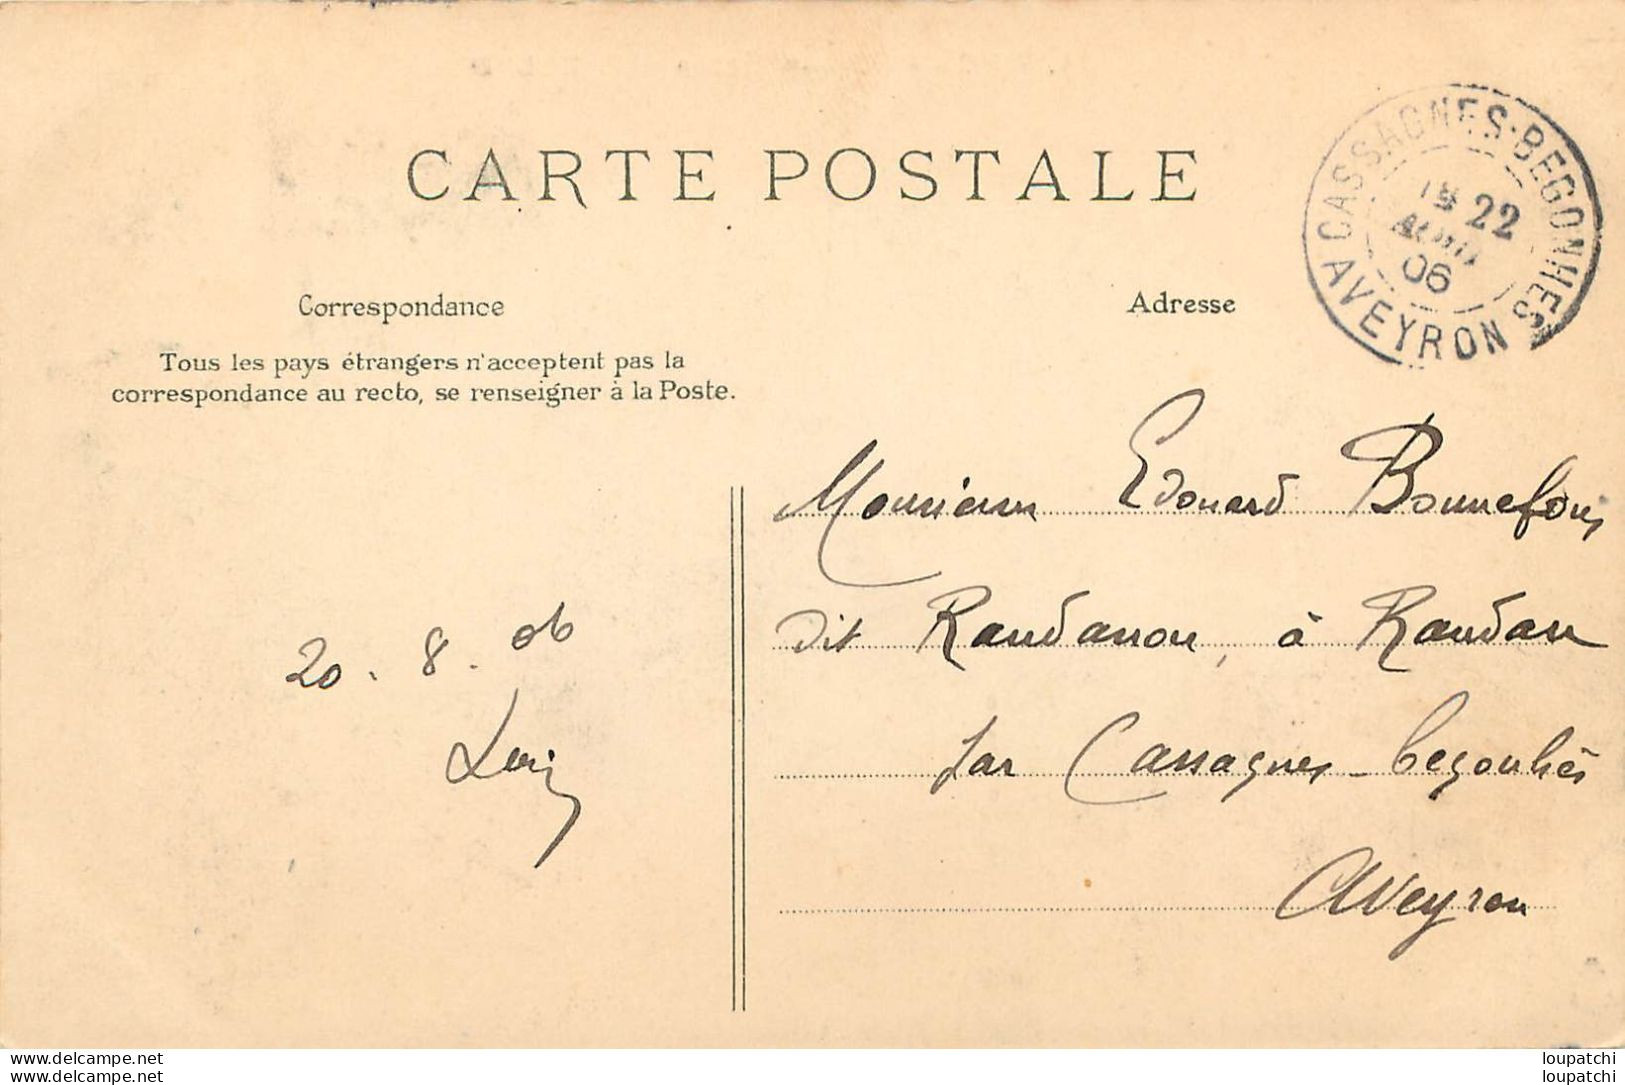 CARTE POSTALE
CASSAGNES-BEGONHES
22
06
AVEYRON
Correspondance
Adresse
Tous les pays étrangers n'acceptent pas la
correspondance au recto, se renseigner à la Poste.
Monsieur Edouard Bonnefous
dit Randanou, à Randan
par Cassagnes-begonhès
Aveyron
20.8.06
www.delcampe.net
loupatchi
www.delcampe.net
loupatchi